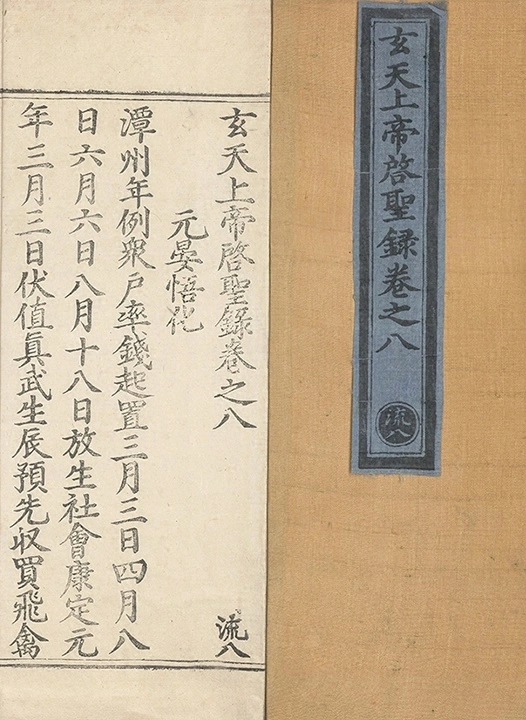 玄天上帝啓聖録卷之八
流八
玄天上帝啓聖錄卷之八
流八
元晏悟化
潭州年例衆戶率錢起置三月三日四月八
日六月六日八月十八日放生社會康定元
年三月三日伏值眞武生辰預先収買飛禽